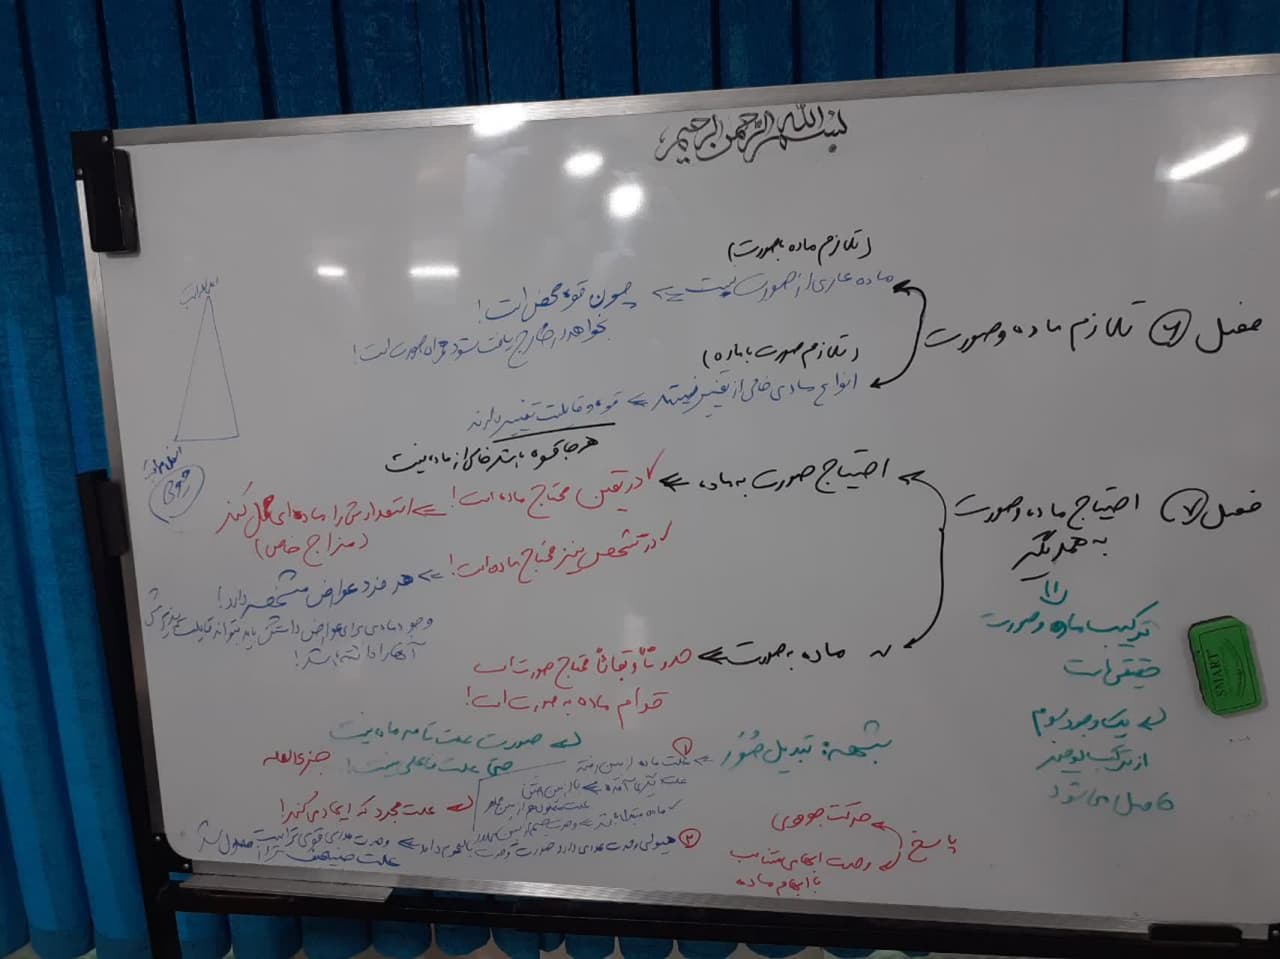 بسم الله الرحمن الرحیم
فصل ۶ تلازم ماده و صورت
(تلازم ماده با صورت)
ماده عاری از صورت نیست ⇐ چون قوه محض است!
بخواهد در خارج یافت شود همراه صورت است!
(تلازم صورت با ماده)
انواع مادی خالی از تغییر نیستند ⇐ قوه و قابلیت تغییر دارند
هر جا قوه باشد خالی از ماده نیست
فصل ۷ احتیاج ماده و صورت
به همدیگر
احتیاج صورت به ماده ⇐
در تعین محتاج ماده است! ⇐ استعدادش را ماده‌ای حمل کند
(مزاج خاص)
در تشخص نیز محتاج ماده است! ⇐ هر فرد عوارض مشخصه دارد!
وجود مادی برای عوارض داشتن باید بتواند قابلیت پذیرش
آنها را داشته باشد!
ماده به صورت ⇐ حدوثاً و بقائاً محتاج صورت است
قوام ماده به صورت است!
ترکیب ماده و صورت
حقیقی است
یک وجود سوم
از ترکیب دو چیز
حاصل می‌شود
شبهه: تبدیل صُوَر
صورت علت تامه ماده نیست
حتی علت فاعلی نیست!
جزء العله
علت مجرد که ایجاد می‌کند!
۱ علت ماده از بین رفته
۲ هیولی وحدت عددی دارد صورت وحدت بالعموم دارد ⇐ وحدت عددی قوی تر است
علت ضعیف تر از معلول
پاسخ
حرکت جوهری
وحدت ابهامی متناسب
با ابهام ماده
هیولی
SMART